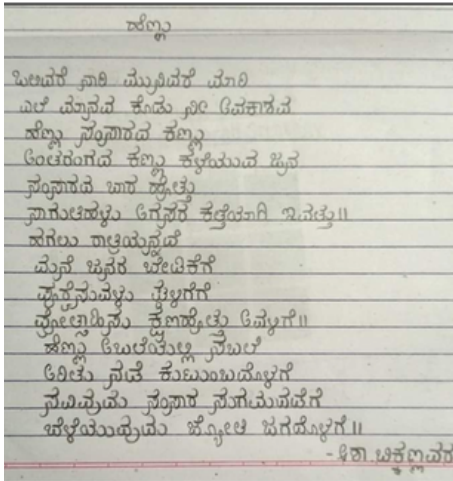 ಹೆಣ್ಣು
ಒಲಿದರೆ ನಾರಿ ಮುನಿದರೆ ಮಾರಿ
ಎಲೆ ಮಾನವ ಕೊಡು ನೀ ಅವಕಾಶವ
ಹೆಣ್ಣು ಸಂಸಾರದ ಕಣ್ಣು
ಅಂತರಂಗದ ಕಣ್ಣು ಕಳೆಯುವ ಜನ
ಸಂಸಾರದ ಬಾರ ಹೊತ್ತು
ಸಾಗುತಿಹಳು ಅಗ್ರಸರ ಕತ್ತೆಯಾಗಿ ಇವತ್ತು॥
ಹಗಲು ರಾತ್ರಿಯನ್ನದೆ
ಮನೆ ಜನರ ಬೇಡಿಕೆಗೆ
ಪೂರೈಸುವಳು ಘಳಿಗೆಗೆ
ಪ್ರೋತ್ಸಾಹಿಸು ಕ್ಷಣಹೊತ್ತು ಅವಳಿಗೆ॥
ಹೆಣ್ಣು ಅಬಲೆಯಲ್ಲ ಸಬಲೆ
ಅರಿತು ನಡೆ ಕುಟುಂಬದೊಳಗೆ
ಸವಿವುದು ಸಂಸಾರ ಸುಗಮದೆಡೆಗೆ
ಬೆಳೆಯುವುದು ಜ್ಯೋತಿ ಜಗದೊಳಗೆ॥
- ಆಶಾ. ಚಿಕ್ಕಣ್ಣವರ